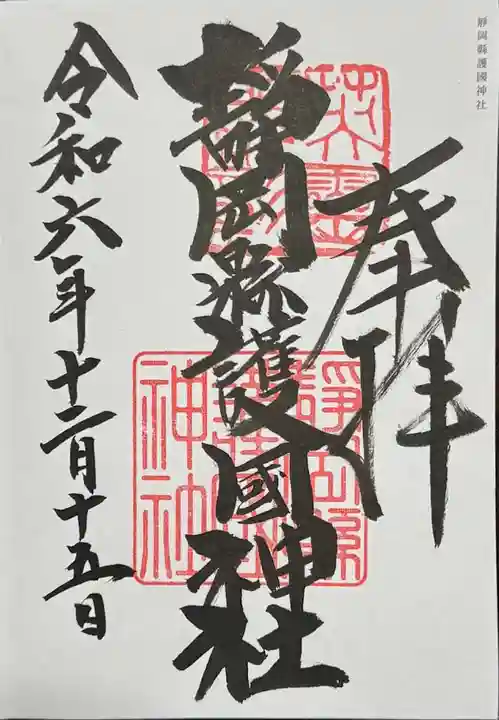 靜岡縣護國神社
奉拝
靜岡縣護國神社
令和六年十二月十五日
英霊
靜岡縣護國神社